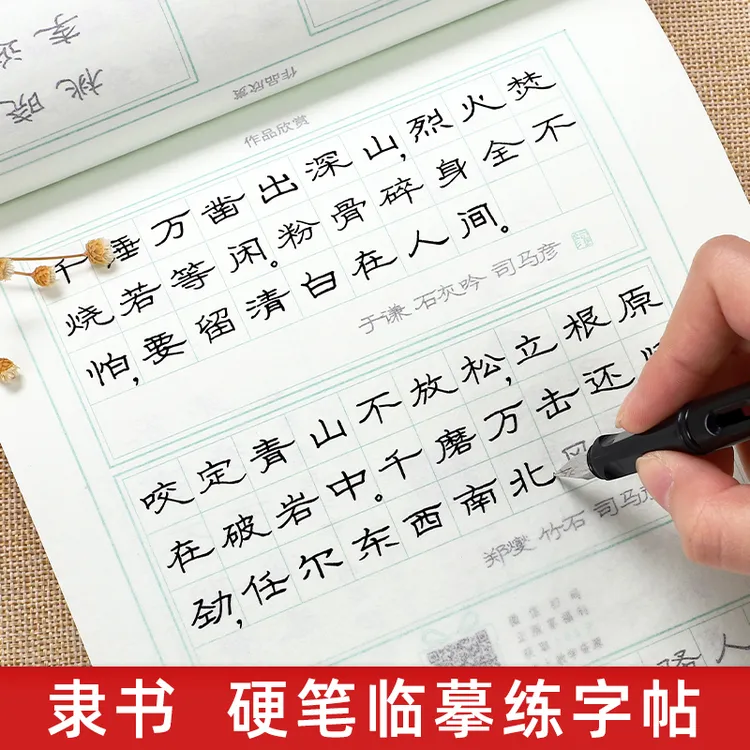 作品欣赏
作品欣赏
千锤万凿出深山,烈火焚
烧若等闲。粉骨碎身全不
怕,要留清白在人间。
于谦 石灰吟 司马彦
咬定青山不放松,立根原
在破岩中。千磨万击还
劲,任尔东西南北风
郑燮 竹石 司马彦
路人
隶书 硬笔临摹练字帖